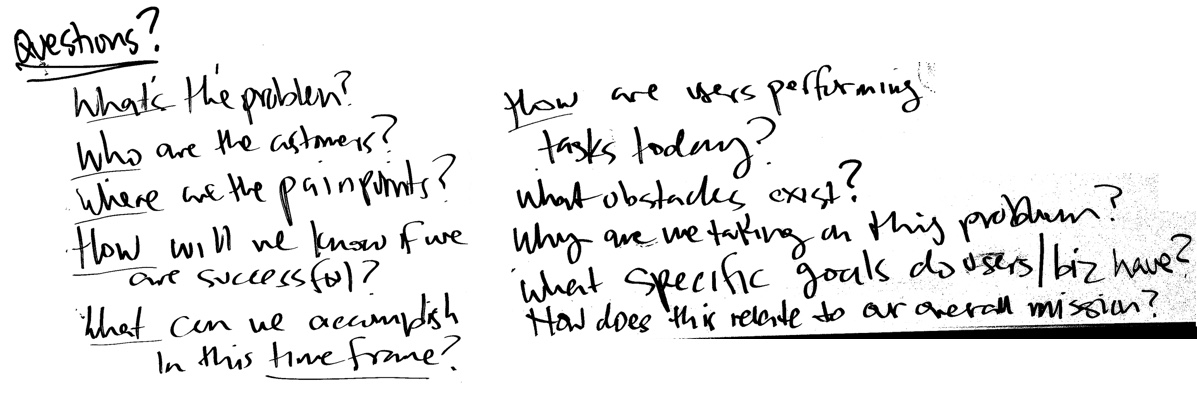 Questions?
What's the problem?
Who are the customers?
Where are the pain points?
How will we know if we
are successful?
What can we accomplish
in this time frame?
How are users performing
tasks today?
What obstacles exist?
Why are we taking on this problem?
What specific goals do users/biz have?
How does this relate to our overall mission?